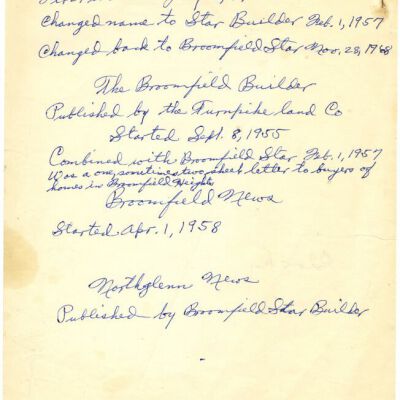 Changed name to Star Builder Feb. 1, 1957
Changed back to Broomfield Star Nov. 28, 1968
The Broomfield Builder
Published by the Turnpike land Co
Started Sept. 8, 1955
Combined with Broomfield Star Feb. 1, 1957
Was a one, sometimes two sheet letter to buyers of
homes in Broomfield Heights
Broomfield News
Started Apr. 1, 1958
Northglenn News
Published by Broomfield Star Builder